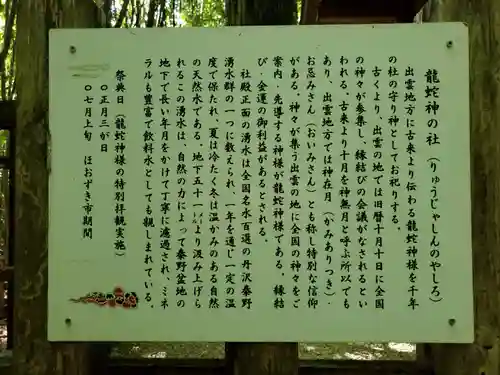 龍蛇神の社（りゅうじゃしんのやしろ）
出雲地方に古来より伝わる龍蛇神様を千年
の社の守り神としてお祀りする。
古くより、出雲の地では旧暦十月十日に全国
の神々が参集し、縁結びの会議がなされるとい
われる。古来より十月を神無月と呼ぶ所以でも
あり、出雲地方では神在月（かみありつき）・
お忌みさん（おいみさん）とも称し特別な信仰
がある。神々が集う出雲の地に全国の神々をご
案内・先導する神様が龍蛇神様である。縁結
び・金運の御利益があるとされる。
社殿正面の湧水は全国名水百選の丹沢秦野
湧水群の一つに数えられ、一年を通じ一定の温
度で保たれ、夏は冷たく冬は温かみのある自然
の天然水である。地下五十一㍍より汲み上げら
れるこの湧水は、自然の力によって秦野盆地の
地下で長い年月をかけて丁寧に濾過され、ミネ
ラルも豊富で飲料水としても親しまれている。
祭典日（龍蛇神様の特別拝観実施）
〇正月三が日
〇七月上旬　ほおずき市期間